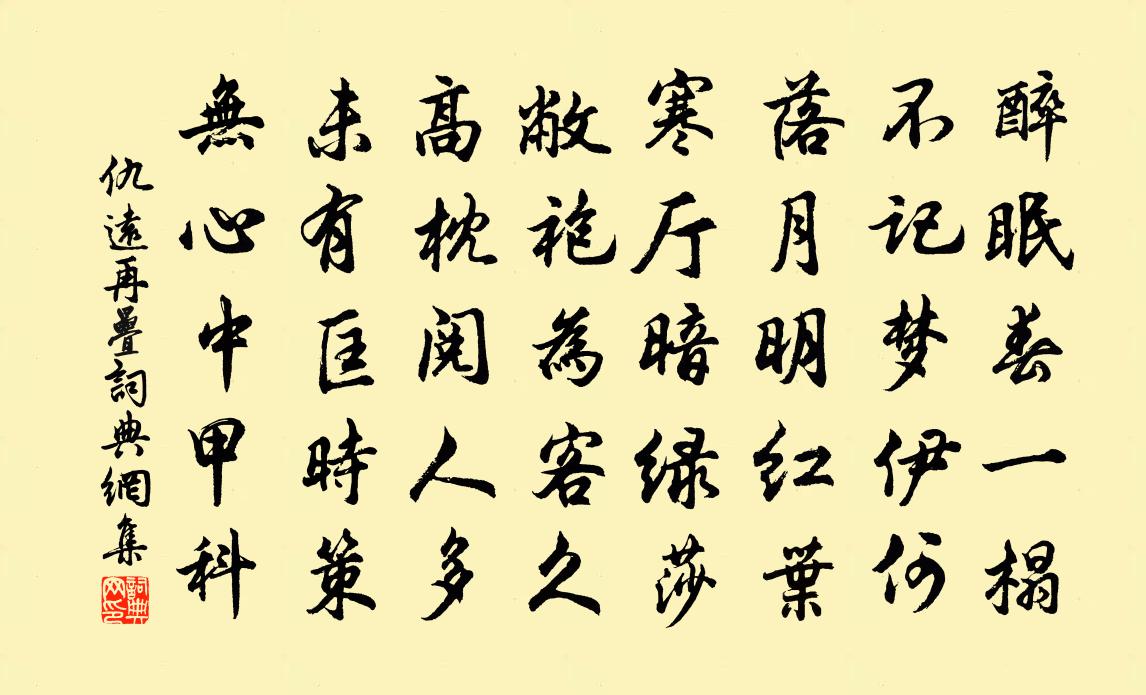 醉眠春一榻
不记梦伊何
落月明红葉
寒厅暗绿莎
敝袍為客久
高枕阅人多
未有匡時策
無心中甲科
仇遠再疊詞典網集
詞典网印